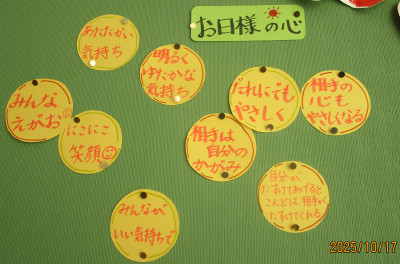 お日様の心
あたたかい
気持ち
明るく
ゆたかな
気持ち
だれにでも
やさしく
相手の
心も
やさしくなる
みんな
えがお
にこにこ
笑顔
相手は
自分の
かがみ
自分が
たすけてあげると
こんどは相手が
たすけてくれる
みんなが
いい気持ちで
2025/10/17